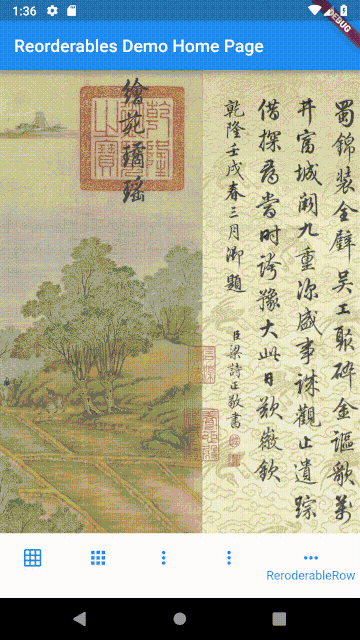 1:36
DEBUG
Reorderables Demo Home Page
蜀錦裝全璧吳工聚碎金謳歌萬
井富城闕九重深盛事誠觀止遺踪
借探尋當時誇豫大此日歎徽欽
乾隆壬戌春三月御題
臣梁詩正敬書
繪苑璚瑤
ReroderableRow